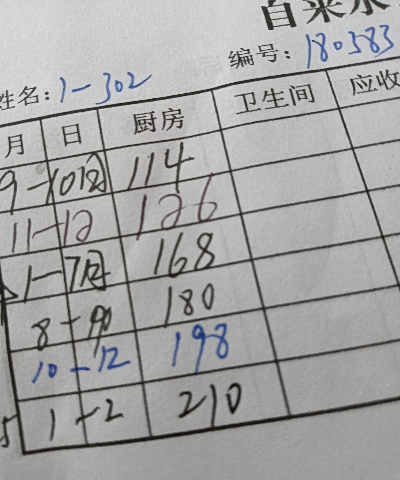 自来水
编号: 180583
姓名: 1-302
月 日 厨房 卫生间 应收
9-10月 114
11-12 126
1-7月 168
8- 180
10-12 198
5 1-2 210